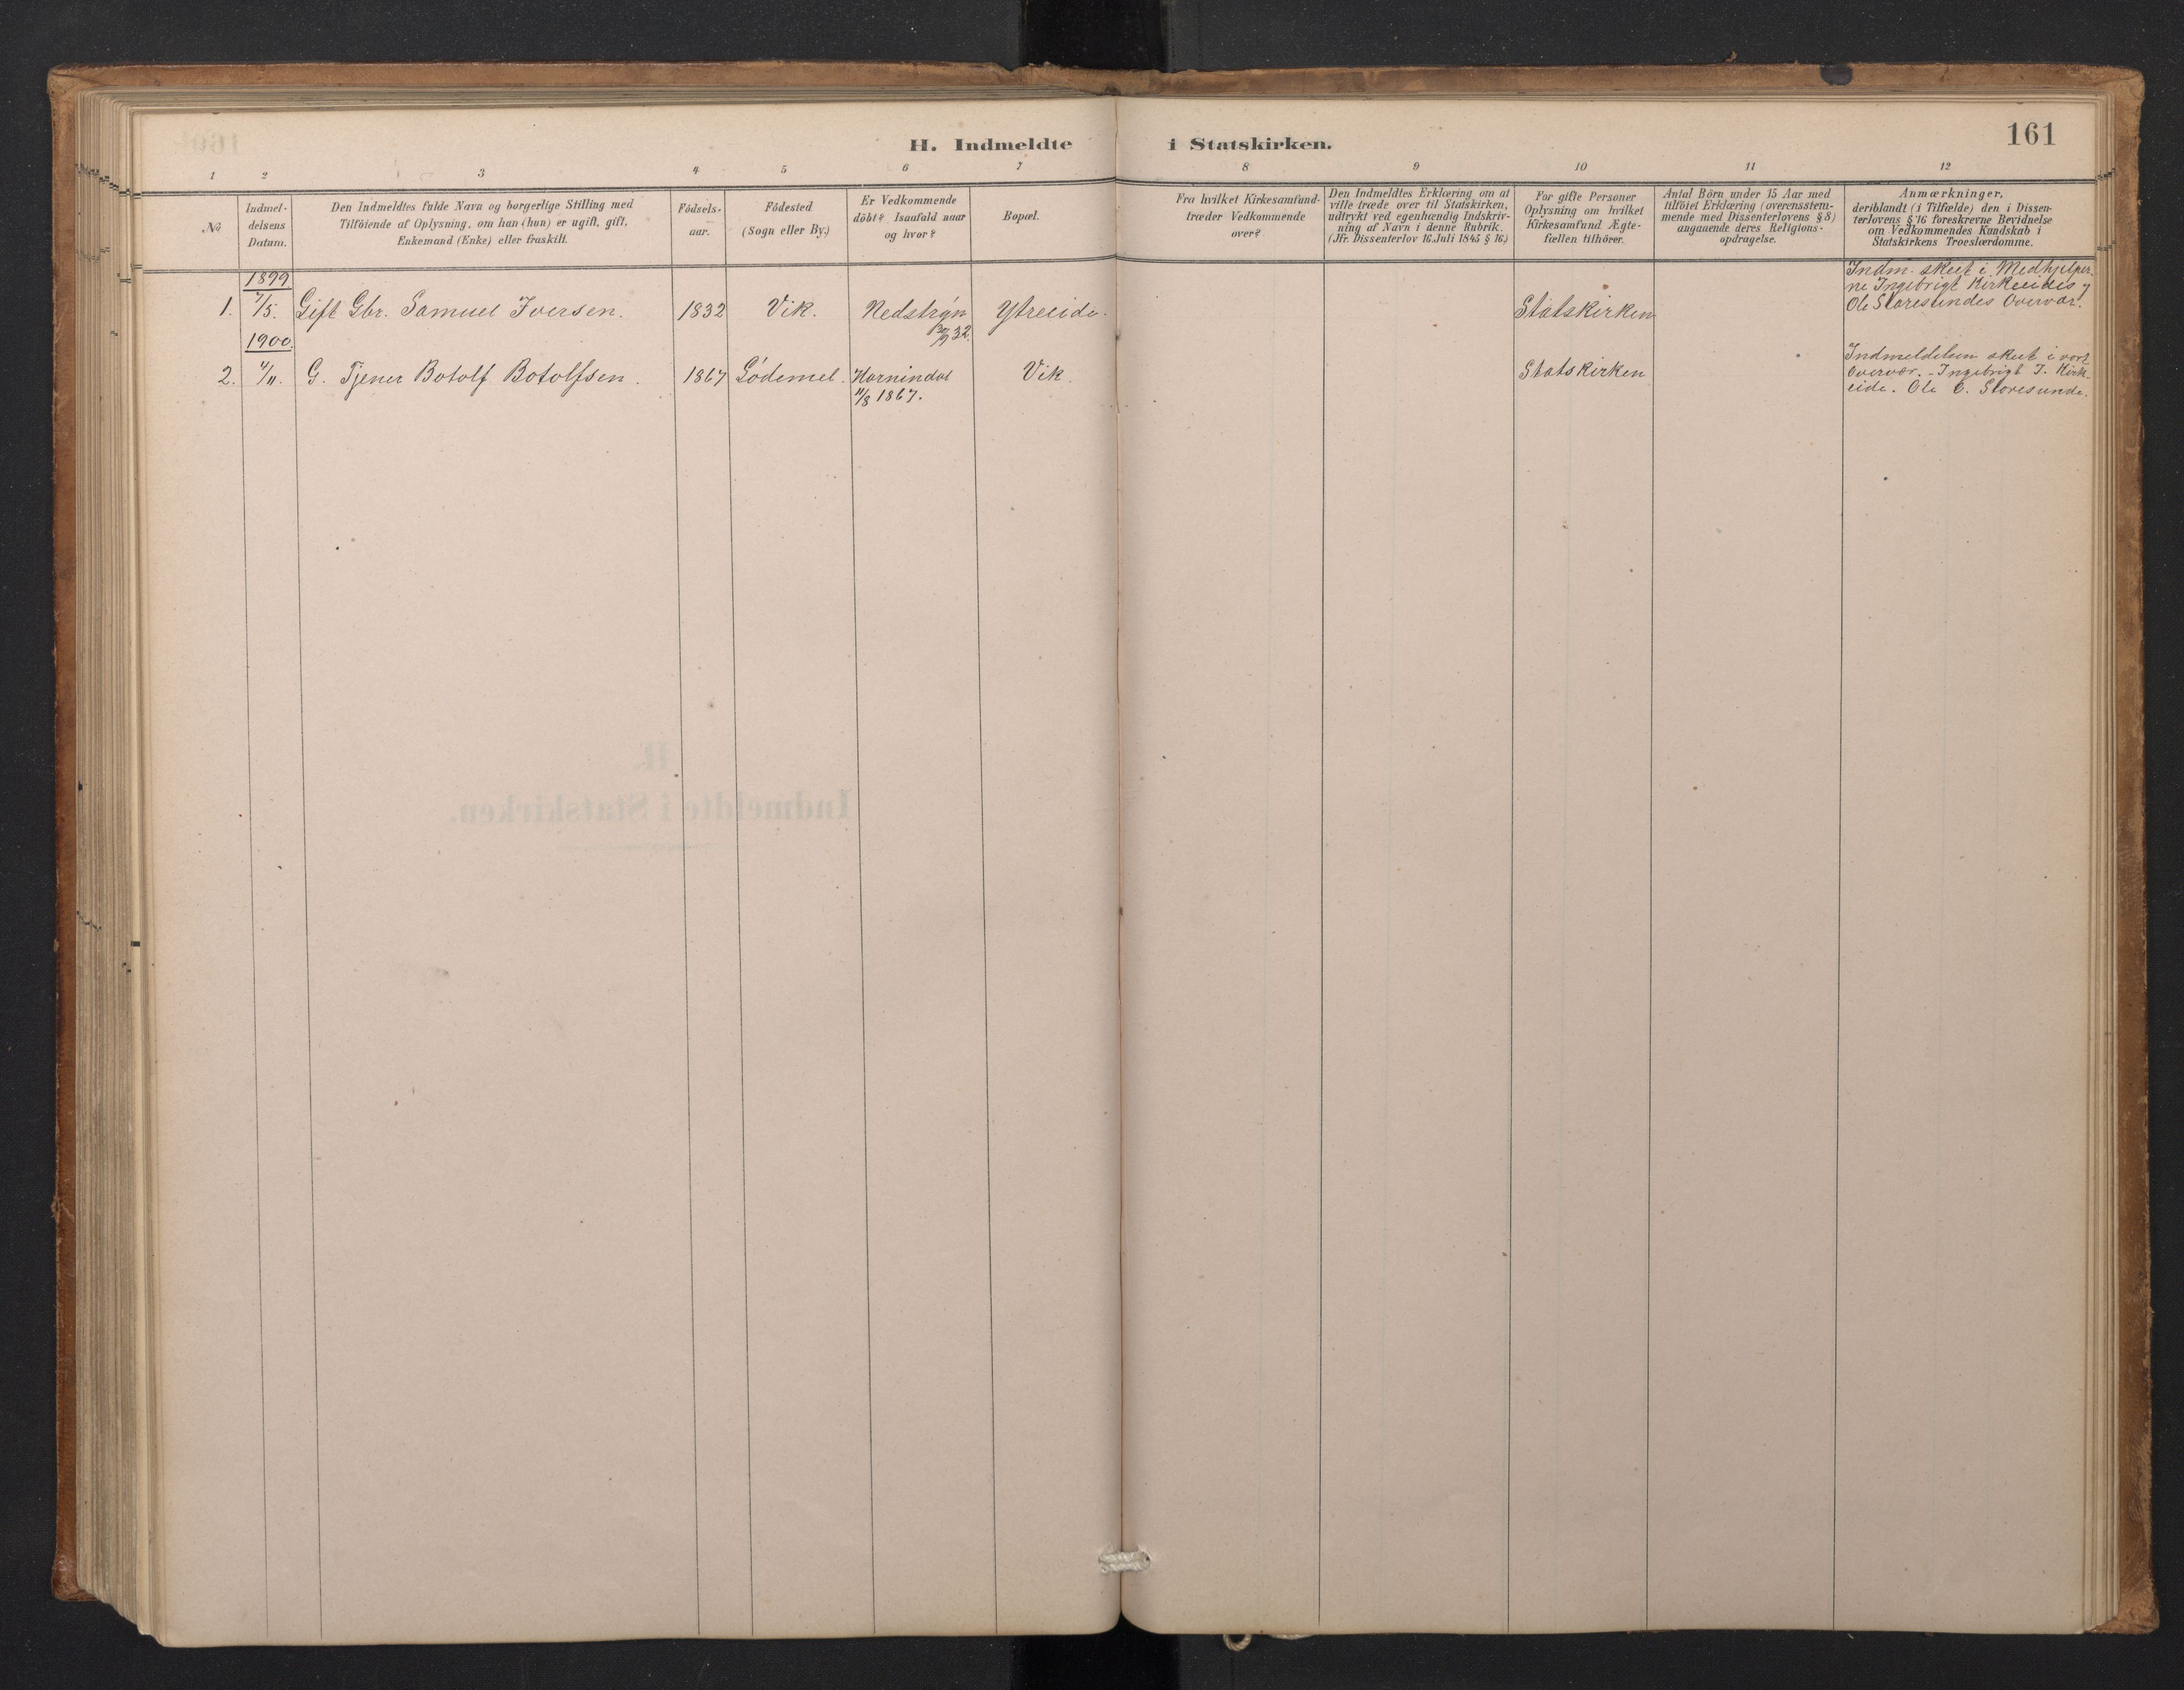 161
H. Indmeldte i Statskirken.
1 2 3 4 5 6 7 8 9 10 11 12
No
Indmel-
delsens
Datum.
Den Indmeldtes fulde Navn og borgerlige Stilling med
Tilföiende af Oplysning, om han (hun) er ugift, gift,
Enkemand (Enke) eller fraskilt.
Födsels-
aar.
Födested
(Sogn eller By.)
Er Vedkommende
döbt? Isaafald naar
og hvor?
Bopæl.
Fra hvilket Kirkesamfund
træder Vedkommende
over?
Den Indmeldtes Erklæring om at
ville træde over til Statskirken,
udtrykt ved egenhændig Indskriv-
ning af Navn i denne Rubrik.
(Jfr. Dissenterlov 16. Juli 1845 § 16.)
For gifte Personer
Oplysning om hvilket
Kirkesamfund Ægte-
fællen tilhörer.
Antal Börn under 15 Aar med
tilföiet Erklæring (overensstem-
mende med Dissenterlovens § 8)
angaaende deres Religions-
opdragelse.
Anmærkninger,
deriblandt (i Tilfælde) den i Dissen-
terlovens § 16 foreskrevne Bevidnelse
om Vedkommendes Kundskab i
Statskirkens Troeslærdomme.
1899
1. 7/5. Gift Gbr. Samuel Iversen. 1832 Vik. Nedstryn Ytreeide. Statskirken
32.
Indm. skeet i Medhjelper-
ne Ingebrigt Kirkeeides
Ole Storesundes Overvær.
1900.
2. 4/11. G. Tjener Botolf Botolfsen. 1867 Lödemel. Hornindal Vik. Statskirken
11/8 1867.
Indmeldelsen skeet i vort
Overvær. - Ingebrigt J. Kirk-
eide. Ole E. Storesunde.
H.
Indmeldte i Statskirken.